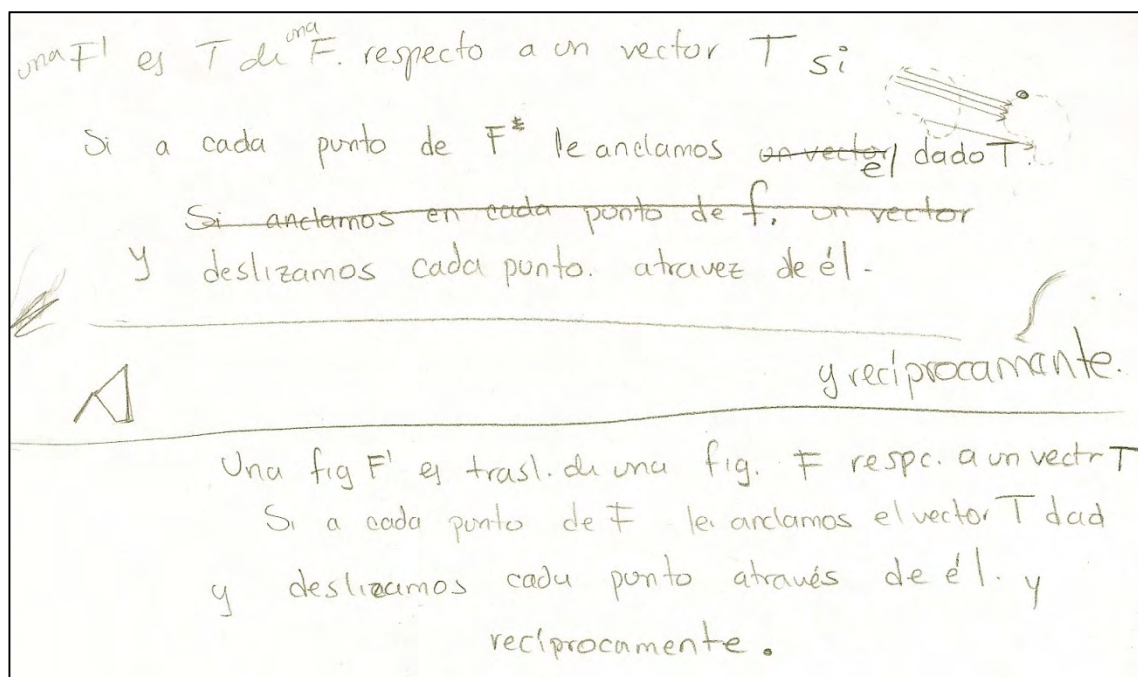 una F' es T de una F. respecto a un vector T si
Si a cada punto de F le anclamos un vector el dado T.
Si anclamos en cada punto de f, un vector
y deslizamos cada punto. atravez de él.
y recíprocamante.
Una fig F' es trasl. de una fig. F respc. a un vectr T
Si a cada punto de F le anclamos el vector T dad
y deslizamos cada punto através de él. y
recíprocamente.